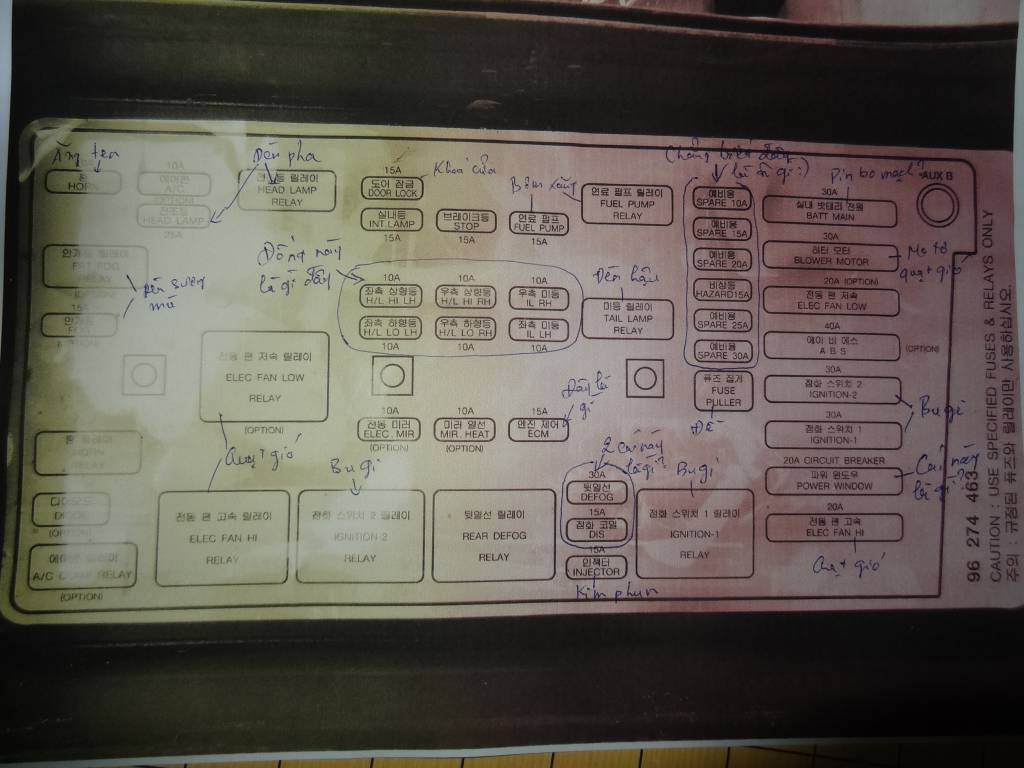 HORN
10A
에어컨
A/C
(OPTION)
전조등
HEAD LAMP
25A
Đèn pha
HEAD LAMP
RELAY
15A
도어 잠금
DOOR LOCK
Khoá cửa
실내등
INT.LAMP
15A
브레이크등
STOP
15A
Bơm xăng
연료 펌프
FUEL PUMP
15A
연료 펌프 릴레이
FUEL PUMP
RELAY
예비용
SPARE 10A
예비용
SPARE 15A
예비용
SPARE 20A
비상등
HAZARD15A
예비용
SPARE 25A
예비용
SPARE 30A
퓨즈 집게
FUSE
PULLER
Pin bo mạch?
30A
실내 밧테리 전원
BATT MAIN
AUX B
30A
히터 모터
BLOWER MOTOR
Mô tơ
quạt gió
20A (OPTION)
전동 팬 저속
ELEC FAN LOW
40A
에이 비 에스
A B S
(OPTION)
30A
점화 스위치 2
IGNITION-2
30A
점화 스위치 1
IGNITION-1
Bugi
20A CIRCUIT BREAKER
파워 윈도우
POWER WINDOW
Cái này
là gì?
20A
전동 팬 고속
ELEC FAN HI
Quạt gió
RELAY
(OPTION)
15A
Đèn sương
mù
Đống này
là gì đây
10A
좌측 상향등
H/L HI LH
10A
우측 상향등
H/L HI RH
10A
우측 미등
IL RH
좌측 하향등
H/L LO LH
10A
우측 하향등
H/L LO RH
10A
좌측 미등
IL LH
10A
Đèn hậu
미등 릴레이
TAIL LAMP
RELAY
전동 팬 저속 릴레이
ELEC FAN LOW
RELAY
(OPTION)
Quạt gió
10A
전동 미러
ELEC.MIR
(OPTION)
10A
미러 열선
MIR.HEAT
(OPTION)
Đây là
gì
15A
엔진 제어
ECM
HORN
RELAY
다이오드
DIODE
(OPTION)
A/C COMP RELAY
(OPTION)
전동 팬 고속 릴레이
ELEC FAN HI
RELAY
Bugi
점화 스위치 2 릴레이
IGNITION-2
RELAY
뒷열선 릴레이
REAR DEFOG
RELAY
2 cái này
là gì?
30A
뒷열선
DEFOG
15A
점화 코일
DIS
15A
인젝터
INJECTOR
Kim phun
Bugi
점화 스위치 1 릴레이
IGNITION-1
RELAY
96 274 463
CAUTION : USE SPECIFIED FUSES & RELAYS ONLY
주의 : 규정된 퓨즈와 릴레이만 사용하십시오.